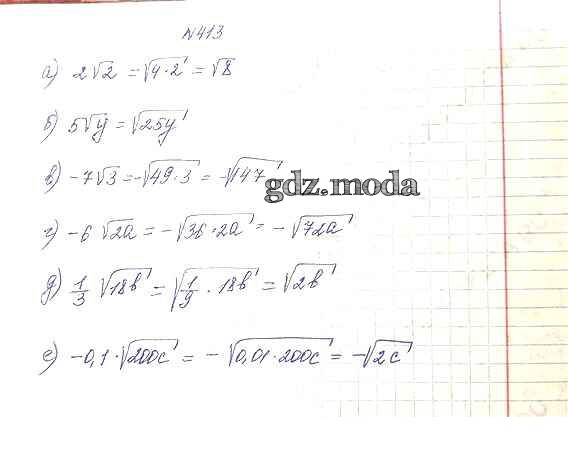 №413
а) 2√2 = √4·2 = √8
б) 5√y = √25y
в) -7√3 = -√49·3 = -√147
gdz.moda
г) -6√2a = -√36·2a = -√72a
д) 1/3 √18b = √1/9 · 18b = √2b
е) -0,1·√200c = -√0,01·200c = -√2c